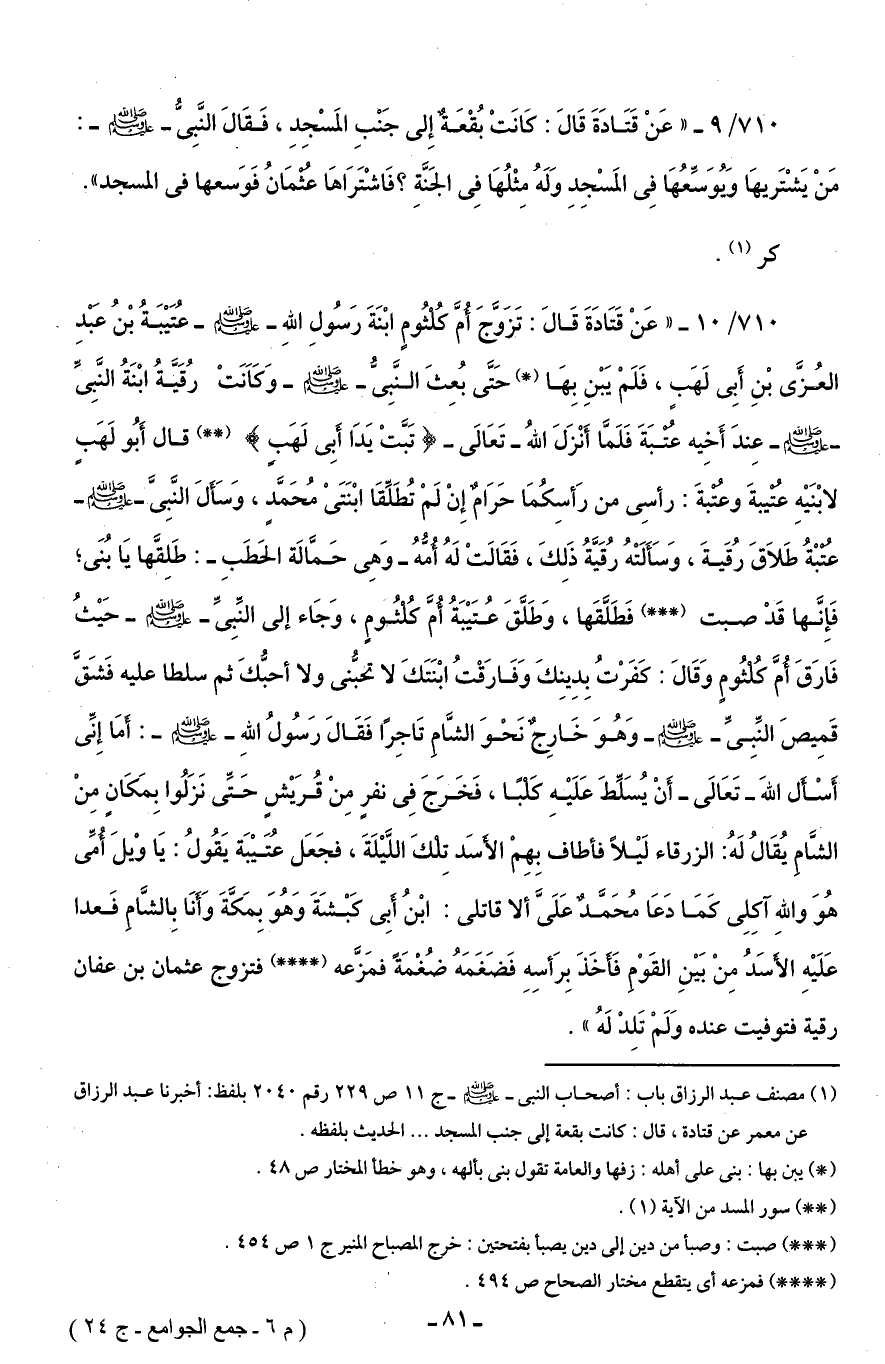 ٧١٠/ ٩ ـ « عَنْ قَتَادَةَ قَالَ : كَانَتْ بُقْعَةٌ إِلى جَنْبِ المَسْجِدِ ، فَقَالَ النَّبىُّ ـ ﷺ ـ :
مَنْ يَشْتَرِيهَا وَيُوَسِّعُهَا فِى المَسْجِدِ وَلَهُ مِثْلُهَا فِى الجَنَّةِ ؟ فَاشْتَرَاهَا عثْمَانُ فَوَسعها فى المسجد» .
كر (١) .
٧١٠/ ١٠ ـ « عَنْ قَتَادَةَ قَالَ : تَزَوَّجَ أُمَّ كُلْثُومٍ ابْنَةَ رَسُولِ اللهِ ـ ﷺ ـ عُتَيْبَةُ بْنُ عَبْدِ
العُزَّى بْنِ أَبِى لَهَبٍ ، فَلَمْ يَبْنِ بِهَا (*) حَتَّى بُعِثَ النَّبىُّ ـ ﷺ ـ وَكَانَتْ رُقَيَّةُ ابْنَةُ النَّبىِّ
ـ ﷺ ـ عِندَ أَخِيه عُتْبَةَ فَلَمَّا أَنْزَلَ اللهُ ـ تَعَالَى ـ ﴿ تَبَّتْ يَدَا أَبِى لَهَبٍ ﴾ (**) قال أَبُو لَهَبٍ
لابْنَيْهِ عتَيْبَةَ وعتْبَةَ : رأسى من رَأسكُمَا حَرَامٌ إِنْ لَمْ تُطَلِّقَا ابْنَتَىْ مُحَمَّدٍ ، وَسَأَلَ النَّبىَّ ـ ﷺ ـ
عتْبَةُ طَلاَقَ رُقَيةَ ، وَسَأَلَتْهُ رُقَيَّةُ ذَلِكَ ، فَقَالَتْ لَهُ أُمُّهُ ـ وَهِى حَمَّالَة الحَطَبِ ـ : طَلِقَّها يَا بُنَى؛
فَإِنَّها قَدْ صبت (***) فَطَلَّقَها ، وَطَلَّقَ عتَيْبَةُ أُمَّ كُلْثُومٍ ، وَجَاء إلى النَّبِىِّ ـ ﷺ ـ حَيْثُ
فَارَقَ أُمَّ كُلْثُومٍ وَقَالَ : كَفَرْتُ بِدِينِكَ وَفَارَقْتُ ابْنَتَكَ لا تحبُّنى ولا أحبُّكَ ثم سلطا عليه فَشَقَّ
قَمِيصَ النَّبِىِّ ـ ﷺ ـ وَهُوَ خَارِجٌ نَحْوَ الشامِ تَاجِرًا فَقَالَ رَسُولُ اللهِ ـ ﷺ ـ : أَمَا إِنِّى
أَسْأَل اللهَ ـ تَعَالَى ـ أَنْ يُسَلِّطَ عَلَيْهِ كَلْبًا ، فَخَرَجَ فِى نفرٍ مِنْ قُرَيْشٍ حَتَّى نَزَلُوا بِمَكَانٍ مِنَ
الشامِ يُقَالُ لَهُ: الزرقاء لَيْلاً فأطاف بِهِمْ الأَسَد تِلْكَ اللَّيْلَةَ ، فجَعَل عُتَيْبَة يَقُولُ : يَا وَيْلَ أُمِّى
هُوَ واللهِ آكلِى كَمَا دَعَا مُحَمَّدٌ عَلَىَّ ألا قاتلى : ابْنُ أَبِى كَبْشَةَ وَهُوَ بِمَكَّةَ وَأَنَا بِالشَّامِ فَعدا
عَلَيْهِ الأَسَدُ مِنْ بَيْنِ القَوْمِ فَأَخَذَ بِرَأسِهِ فَضَغَمَهُ ضُغْمَةً فمَزَّعه (****) فتزوج عثمان بن عفان
رقية فتوفيت عنده وَلَمْ تَلِدْ لَهُ » .
(١) مصنف عبد الرزاق باب : أصحاب النبى ـ ﷺ ـ ج ١١ ص ٢٢٩ رقم ٢٠٤٠ بلفظ: أخبرنا عبد الرزاق
عن معمر عن قتادة ، قال : كانت بقعة إلى جنب المسجد ... الحديث بلفظه .
(*) يبن بها : بنى على أهله : زفها والعامة تقول بنى بألهه ، وهو خطأ المختار ص ٤٨ .
(**) سور المسد من الآية (١) .
(***) صبت : وصبأ من دين إلى دين يصبأ بفتحتين : خرج المصباح المنير ج ١ ص ٤٥٤ .
(****) فمزعه أى يتقطع مختار الصحاح ص ٤٩٤ .
ـ ٨١ ـ
( م ٦ ـ جمع الجوامع ـ ج ٢٤ )